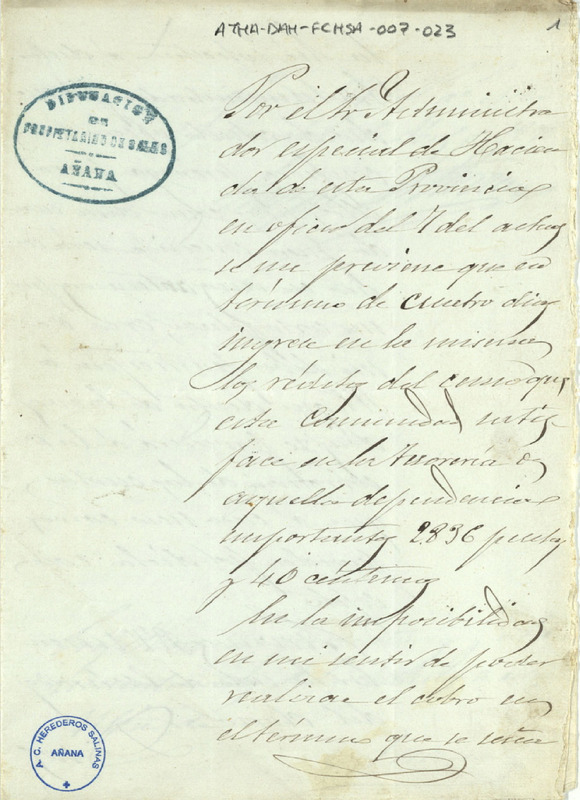 ATHA-DAH-FCHSA-007-023
1
DIPUTACION
DE
PROPIETARIOS DE SALES
AÑANA
Por el Sr Administra
dor especial de Hacien
da de esta Provincia
en oficio del 7 del actual
se me previene que en
término de cuatro dias
ingrese en la misma
los réditos del censo que
esta Comunidad satis
face en la Tesorería de
aquella dependencia
importantes 2.836 pesetas
y 40 céntimos
En la imposibilidad
en mi sentir de poder
realizar el cobro en
el término que se seña
A. C. HEREDEROS SALINAS
AÑANA